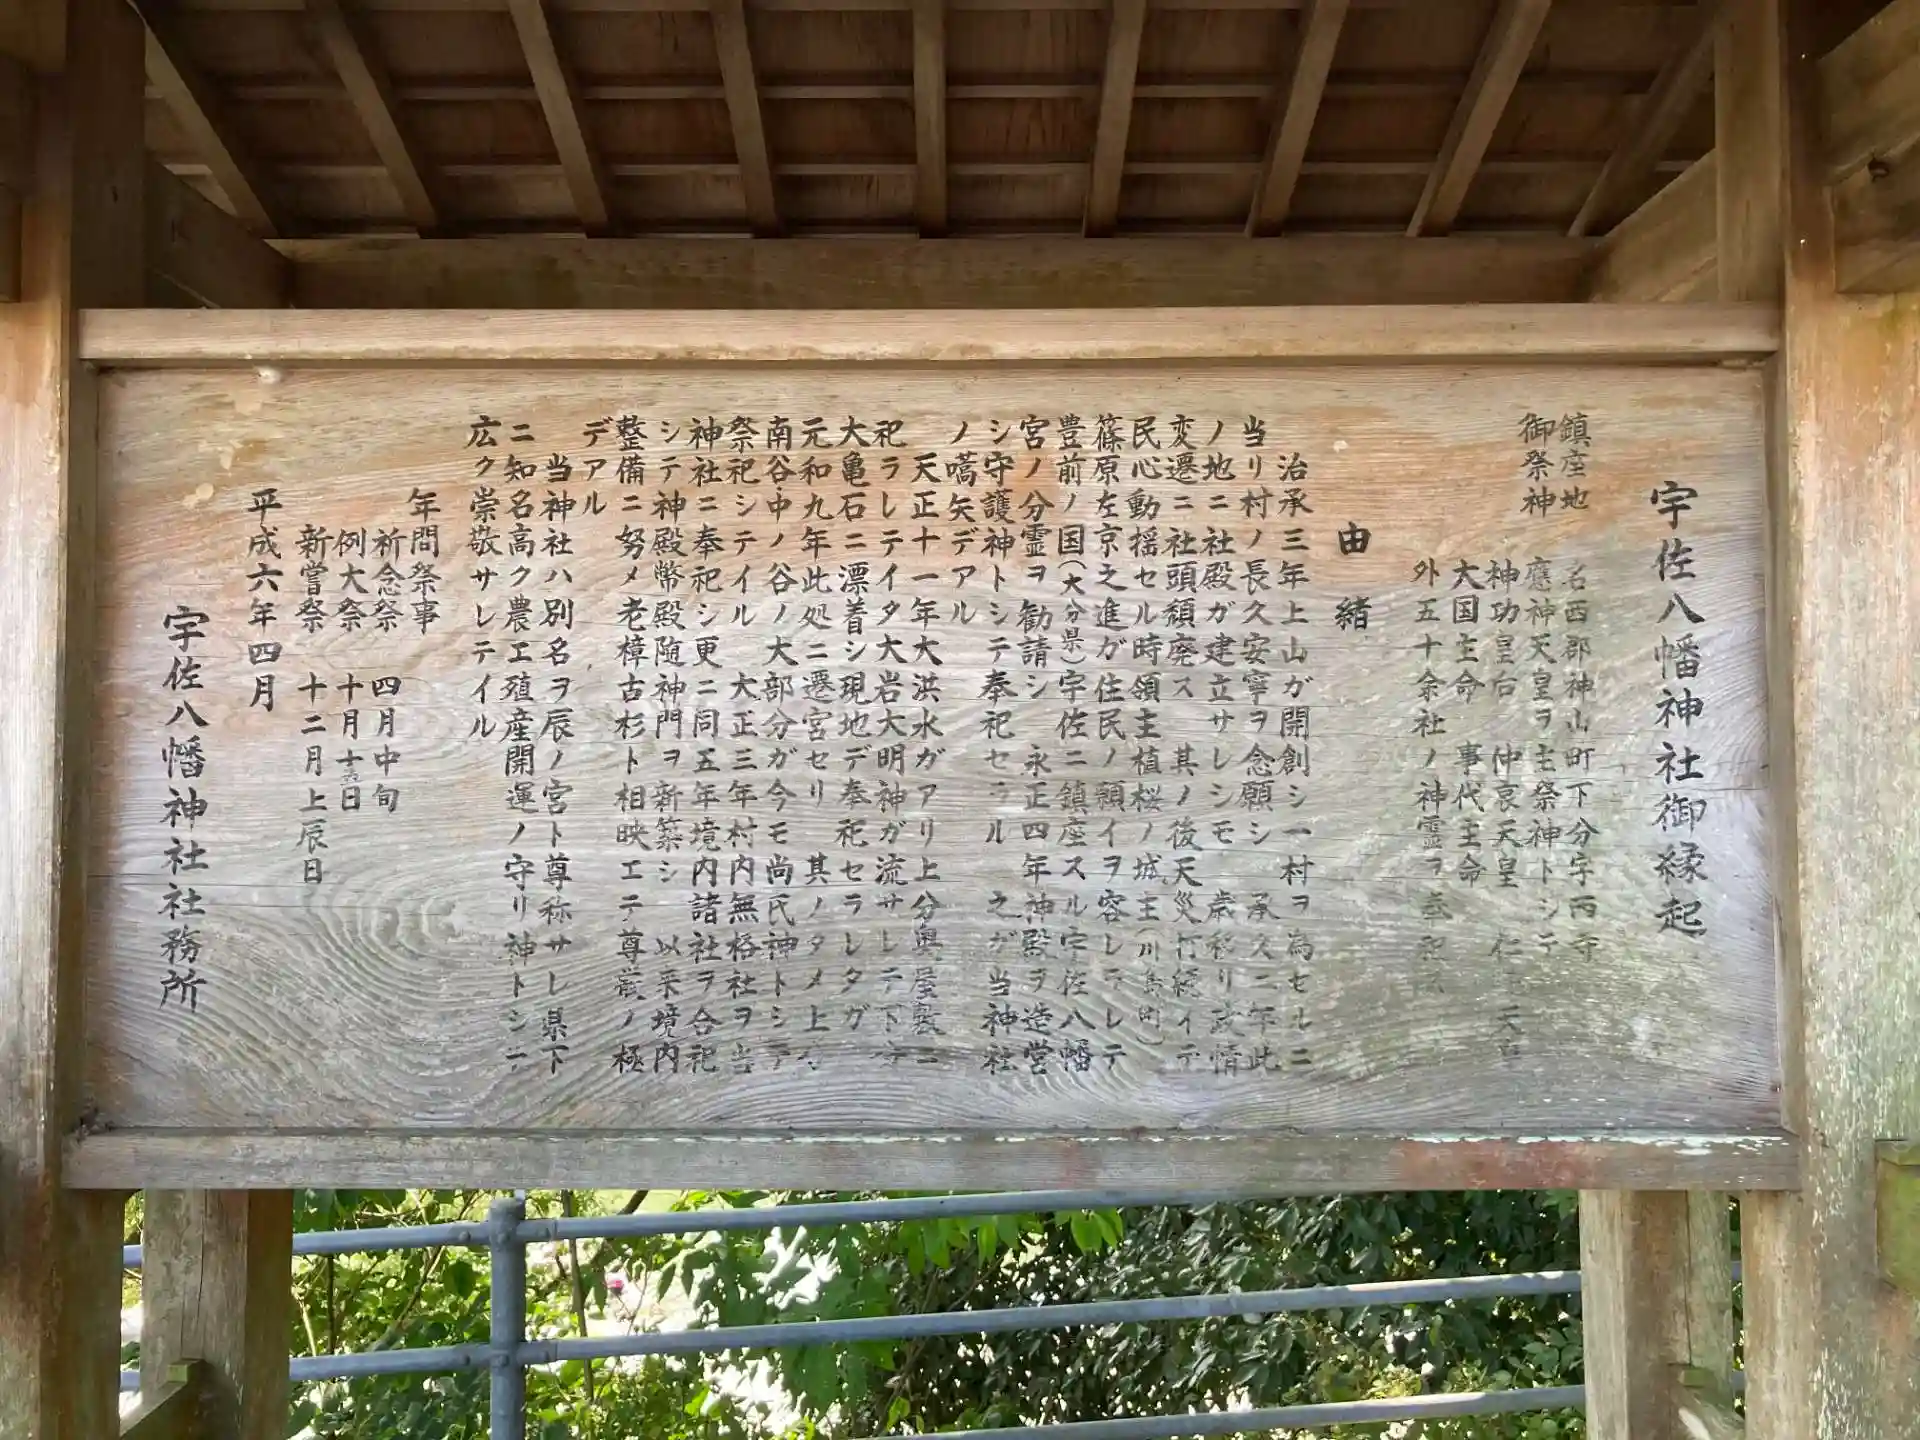 宇佐八幡神社御縁起
鎮座地 名西郡神山町下分字西寺
御祭神 應神天皇ヲ主祭神トシテ
神功皇后 仲哀天皇 仁 天皇
大国主命 事代主命
外五十余社ノ神霊ヲ奉祀
由緒
治承三年上山ガ開創シ一村ヲ為セルニ
当リ村ノ長久安寧ヲ念願シ 承久二年此
ノ地ニ社殿ガ建立サレシモ 歳移リ政情
変遷ニ社頭頽廃ス 其ノ後天災打続イテ
民心動揺セル時領主植桜ノ城主(川島町)
篠原左京之進ガ住民ノ願イヲ容レラレテ
豊前ノ国(大分県)宇佐ニ鎮座スル宇佐八幡
宮ノ分霊ヲ勧請シ 永正四年神殿ヲ造営
シ守護神トシテ奉祀セラル 之ガ当神社
ノ嚆矢デアル
天正十一年大洪水ガアリ上分奥屋敷ニ
祀ラレテイタ大岩大明神ガ流サレテ下分
大亀石ニ漂着シ現地デ奉祀セラレタガ
元和九年此処ニ遷宮セリ 其ノタメ上分
南谷・中ノ谷ノ大部分ガ今モ尚氏神トシテ
祭祀シテイル 大正三年村内無格社ヲ当
神社ニ奉祀シ更ニ同五年境内諸社ヲ合祀
シテ神殿幣殿随神門ヲ新築シ 以来境内
整備ニ努メ老樟古杉ト相映エテ尊厳ノ極
デアル
当神社ハ別名ヲ辰ノ宮ト尊称サレ県下
ニ知名高ク農工殖産開運ノ守リ神トシテ
広ク崇敬サレテイル
年間祭事
祈念祭 四月中旬
例大祭 十月十五日
新嘗祭 十二月上辰日
平成六年四月
宇佐八幡神社社務所